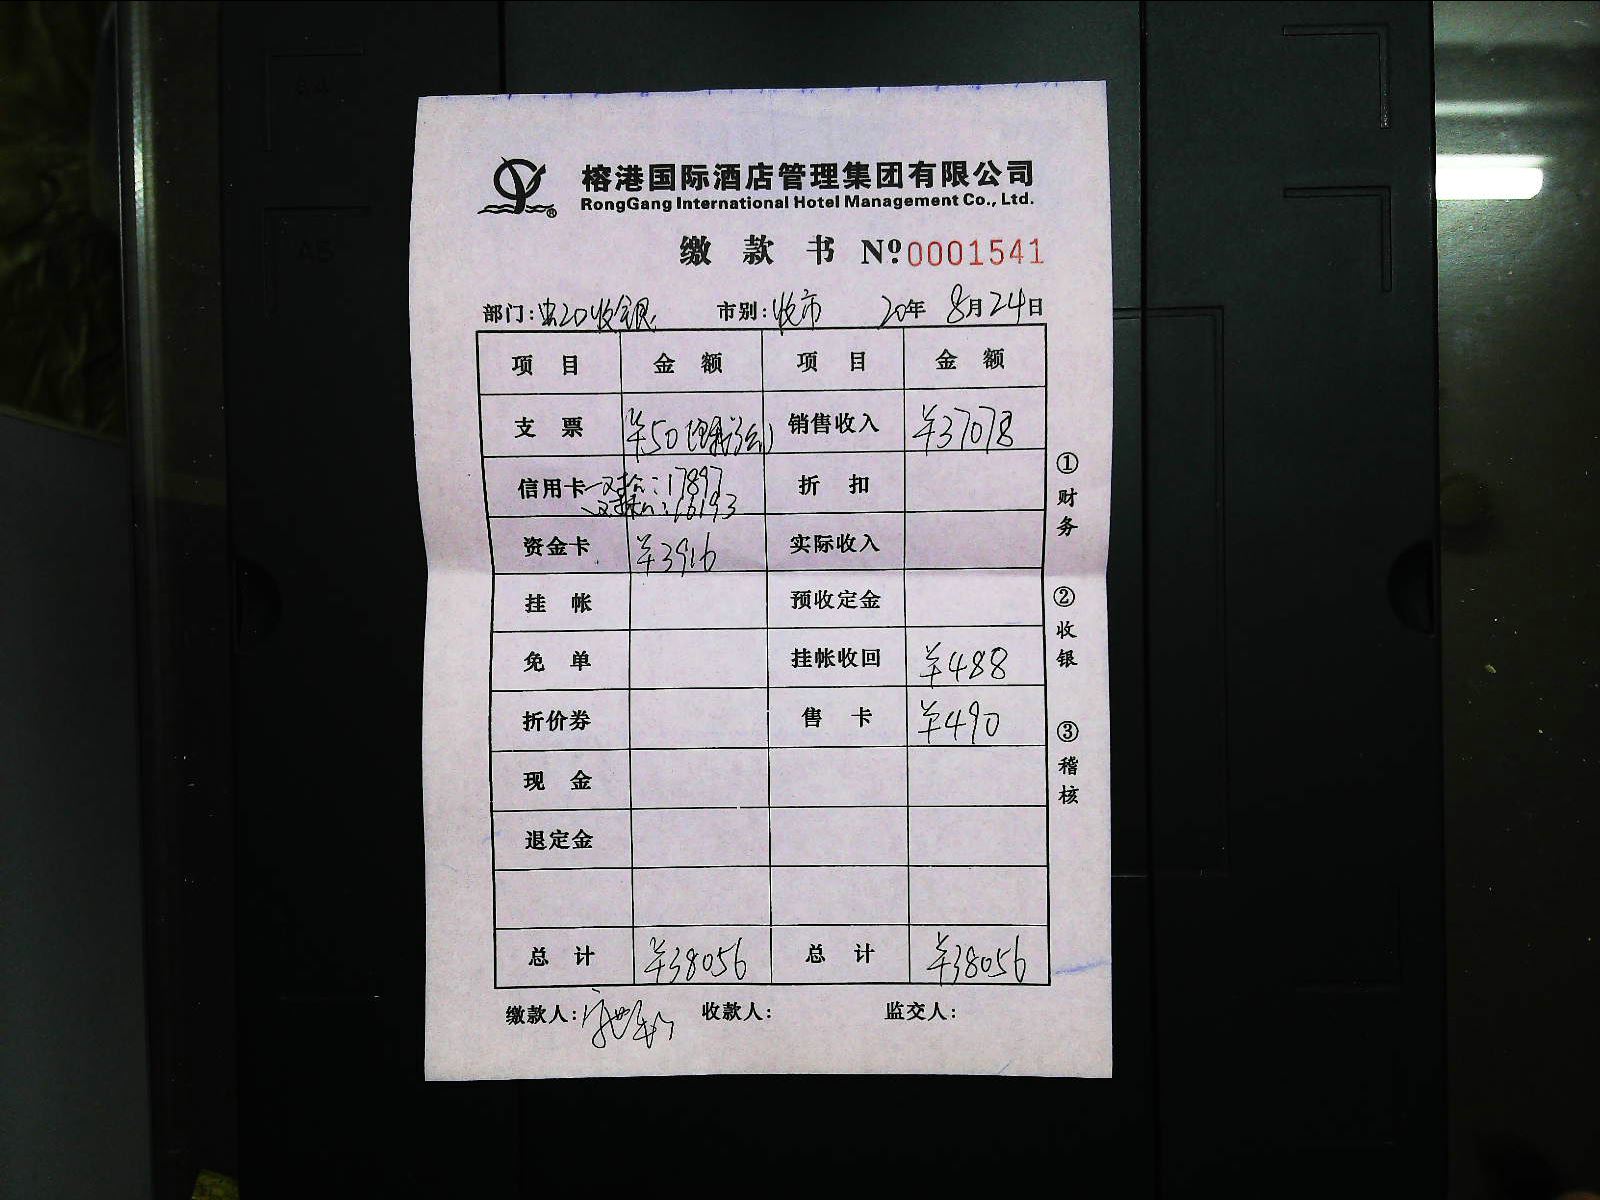 榕港国际酒店管理集团有限公司
RongGang International Hotel Management Co., Ltd.
缴款书 №.0001541
部门: 收银 市别: 收市 20年 8月24日
项目 金额 项目 金额
支票 ¥50 销售收入 ¥37078
信用卡 17897 折扣
16193
资金卡 ¥3916 实际收入
挂帐 预收定金
免单 挂帐收回 ¥488
折价券 售卡 ¥490
现金
退定金
总计 ¥38056 总计 ¥38056
缴款人: 收款人: 监交人:
①财务
②收银
③稽核
A4
A5